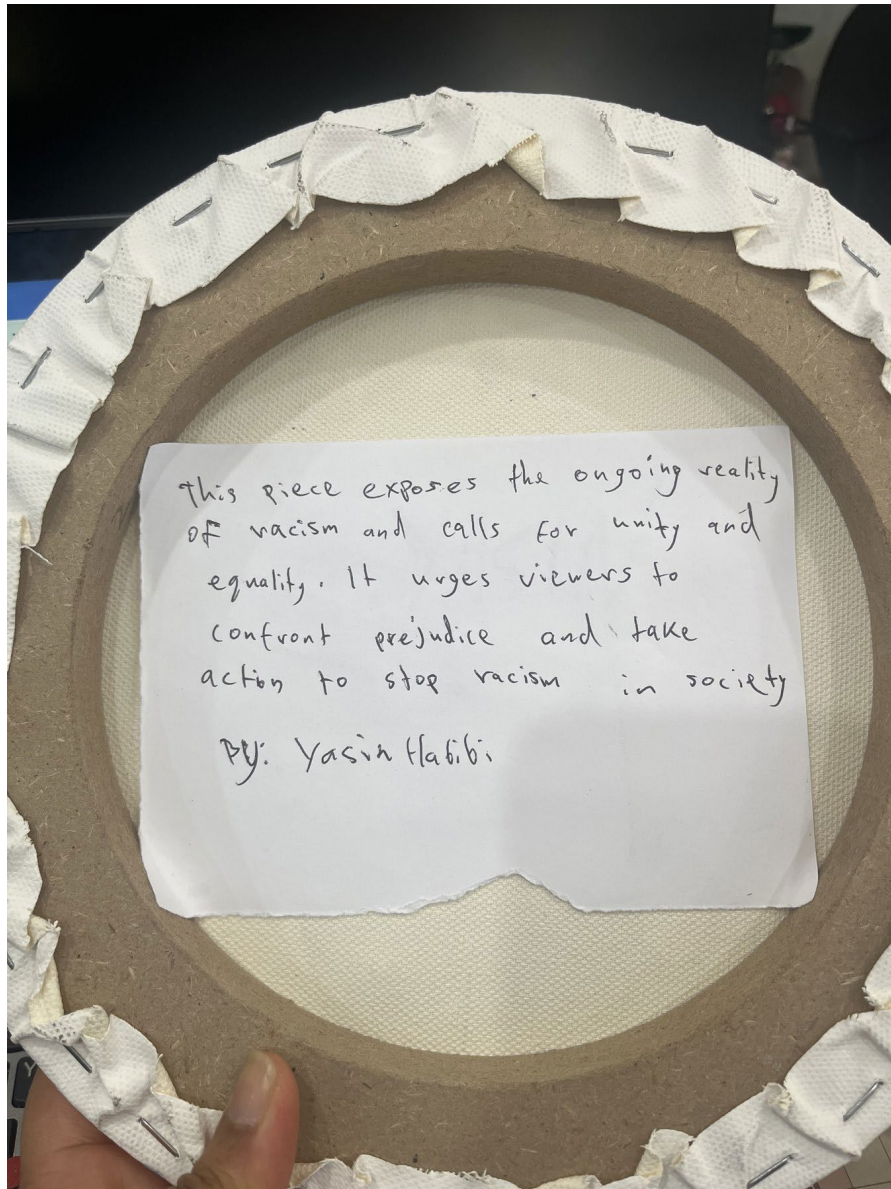 This piece exposes the ongoing reality
of racism and calls for unity and
equality. It urges viewers to
confront prejudice and take
action to stop racism in society
By: Yasin Habibi
Y